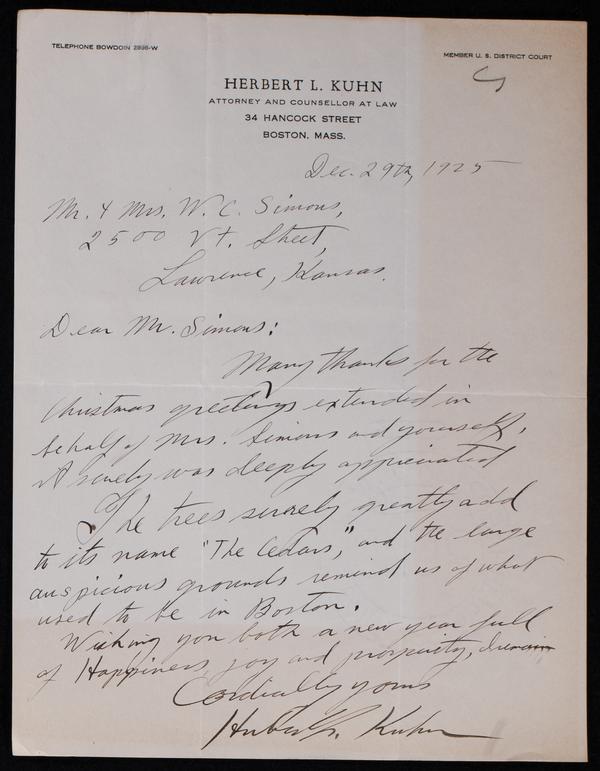 TELEPHONE BOWDOIN 2896-W
MEMBER U. S. DISTRICT COURT
HERBERT L. KUHN
ATTORNEY AND COUNSELLOR AT LAW
34 HANCOCK STREET
BOSTON, MASS.
Dec. 29th, 1925
Mr. & Mrs. W. C. Simons,
2500 Vt. Street,
Lawrence, Kansas.
Dear Mr. Simons:
Many thanks for the
Christmas greetings extended in
behalf of Mrs. Simons and yourself.
It surely was deeply appreciated
The trees surely greatly add
to its name "The Cedars," and the large
auspicious grounds remind us of what
used to be in Boston.
Wishing you both a new year full
of Happiness joy and prosperity, I
Cordially yours
Herbert L. Kuhn